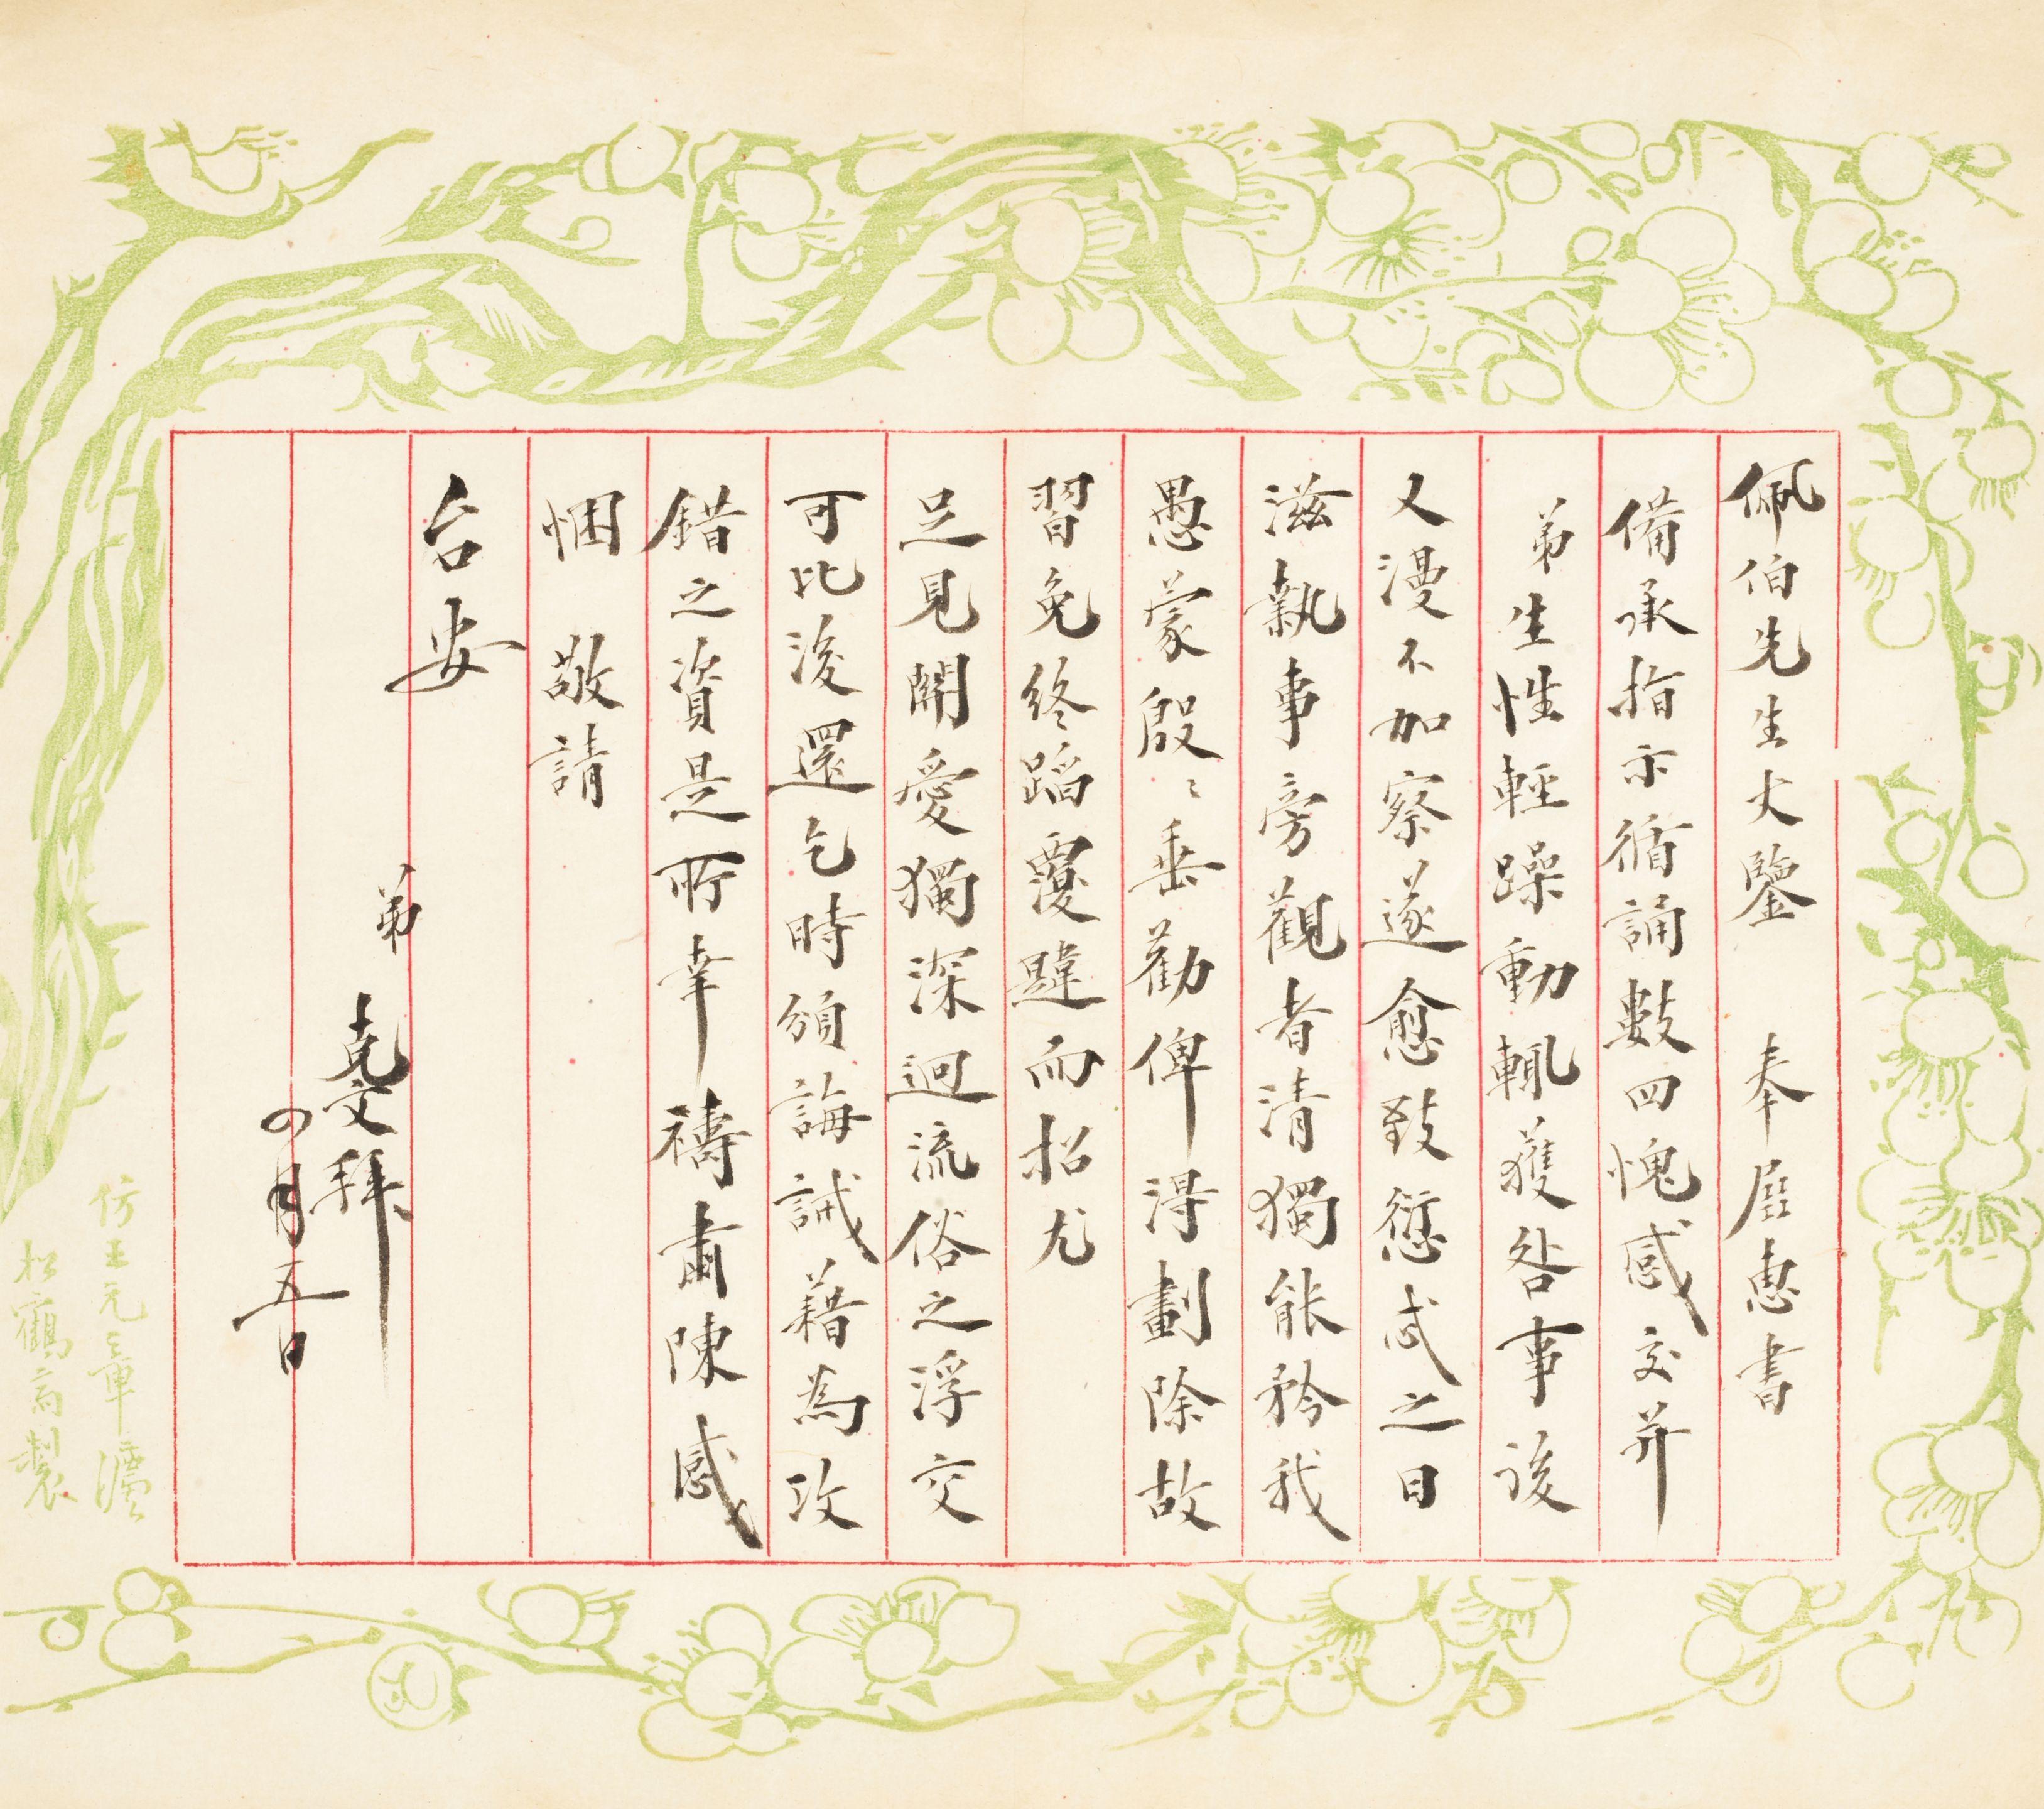 佩伯先生大鑒　奉展惠書
備承指示循誦數四愧感交并
弟生性輕躁動輒獲咎事後
又漫不加察遂愈致愆忒之日
滋執事旁觀者清獨能矜我
愚蒙殷々垂勸俾得劃除故
習免終蹈覆轍而招尤
足見關愛獨深迥流俗之浮交
可比後還乞時頒誨誡藉為攻
錯之資是所幸禱肅陳感
悃　敬請
台安
弟　克文拜
四月五日
仿王元章瀆
松鶴斋製